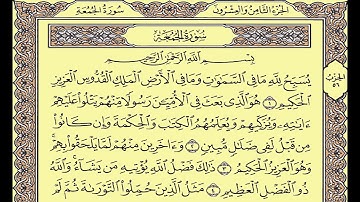 الجزء الثامن والعشرون
سورة الجمعة
سورة الجمعة
بسم الله الرحمن الرحيم
يُسَبِّحُ لِلَّهِ مَا فِي السَّمَوَاتِ وَمَا فِي الْأَرْضِ الْمَلِكِ الْقُدُّوسِ الْعَزِيزِ
الْحَكِيمِ ۝١ هُوَ الَّذِي بَعَثَ فِي الْأُمِّيِّينَ رَسُولًا مِنْهُمْ يَتْلُوا عَلَيْهِمْ
آيَاتِهِ وَيُزَكِّيهِمْ وَيُعَلِّمُهُمُ الْكِتَابَ وَالْحِكْمَةَ وَإِنْ كَانُوا
مِنْ قَبْلُ لَفِي ضَلَالٍ مُبِينٍ ۝٢ وَآخَرِينَ مِنْهُمْ لَمَّا يَلْحَقُوا بِهِمْ
وَهُوَ الْعَزِيزُ الْحَكِيمُ ۝٣ ذَلِكَ فَضْلُ اللَّهِ يُؤْتِيهِ مَنْ يَشَاءُ وَاللَّهُ
ذُو الْفَضْلِ الْعَظِيمِ ۝٤ مَثَلُ الَّذِينَ حُمِّلُوا التَّوْرَاةَ ثُمَّ لَمْ
الحزب
٥٦